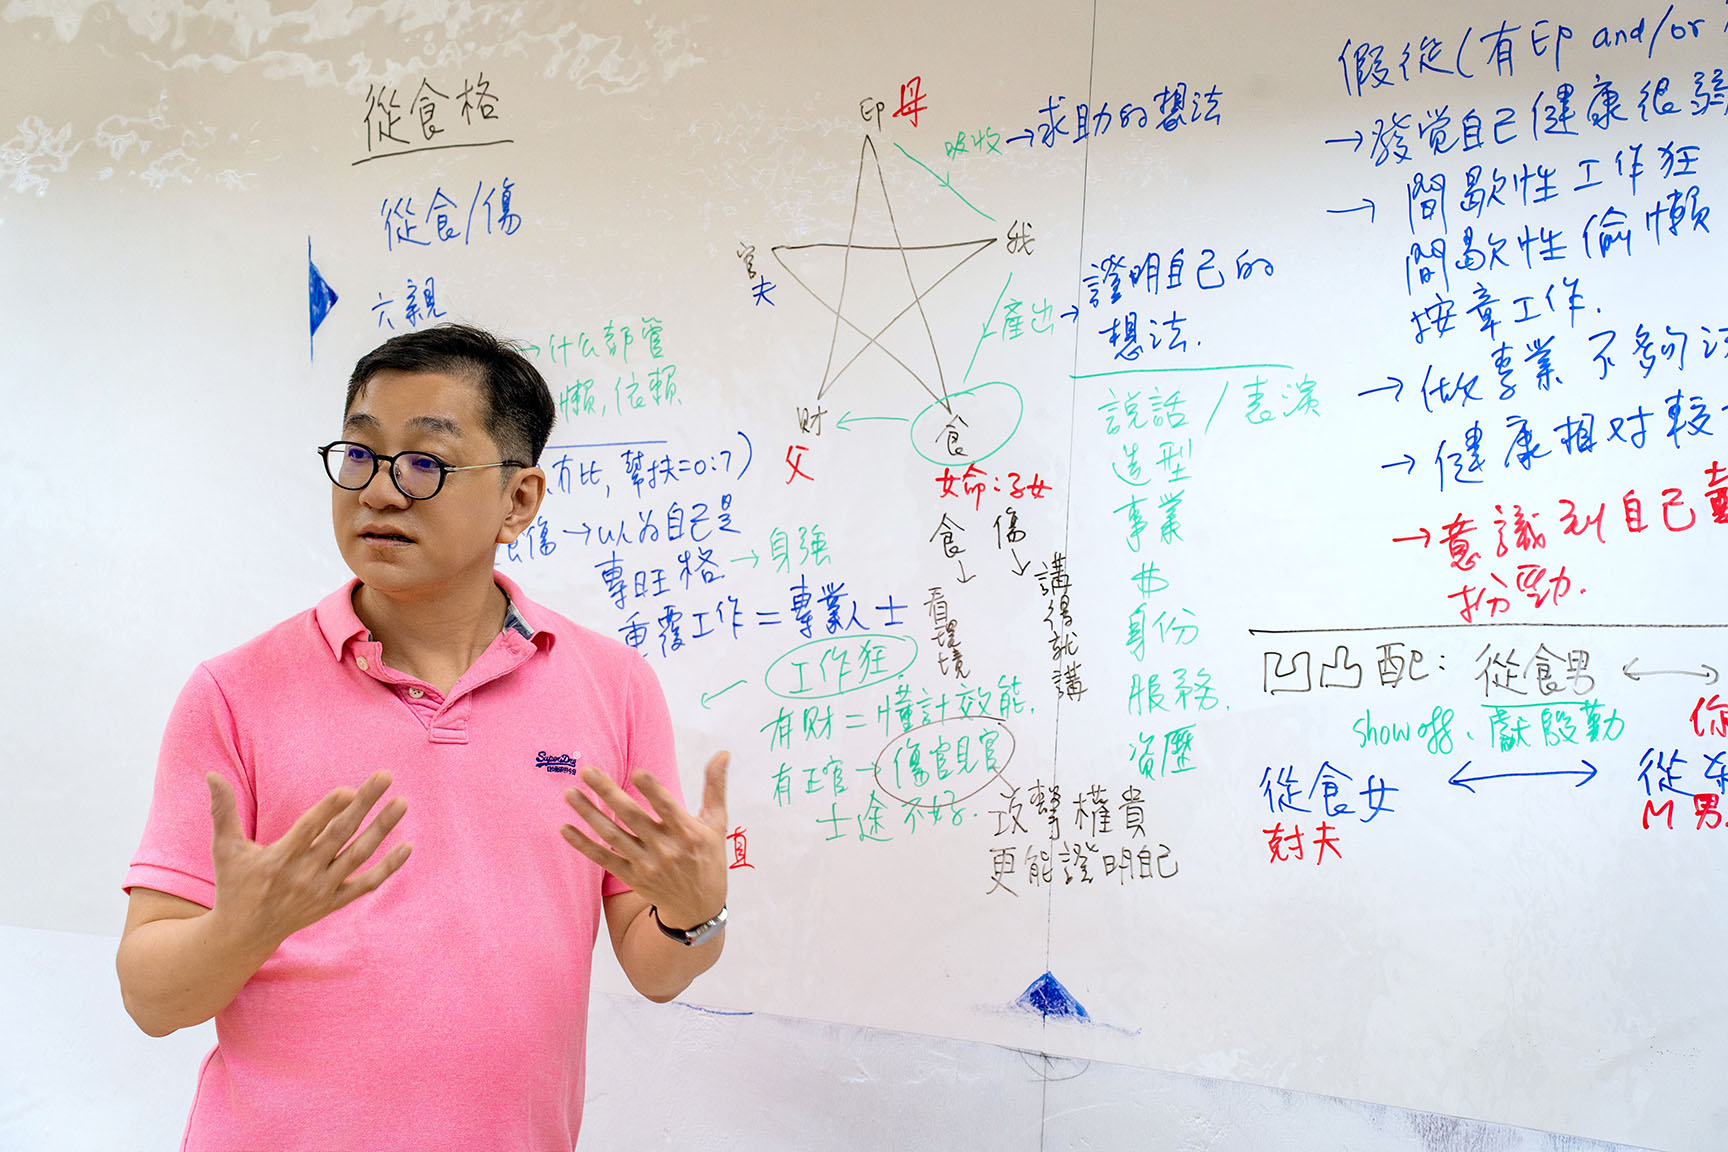 從食格
從食/傷
六親
→什么都管
懶,依賴
有比,幫扶=0:?)
傷→以为自己是
專旺格→身強
重覆工作=專業人士
工作狂
有財=懂計效能.
有正官→傷官見官
士途不好.
攻擊權貴
更能證明自己
直
印母
吸收→求助的想法
我
官
夫
產出→證明自己的
想法.
財
父
食
女命:子女
食 傷
看環境
講得就講
說話/表演
造型
事業
身份
服務.
資歷
假從(有印 and/or
→發觉自己健康很弱
→間歇性工作狂
間歇性偷懶
按章工作.
→做專業不夠
→健康相對較
→意識到自己
扮勁.
凹凸配:從食男
show off、獻殷勤
你
從食女
從
剋夫
M男
SuperDry